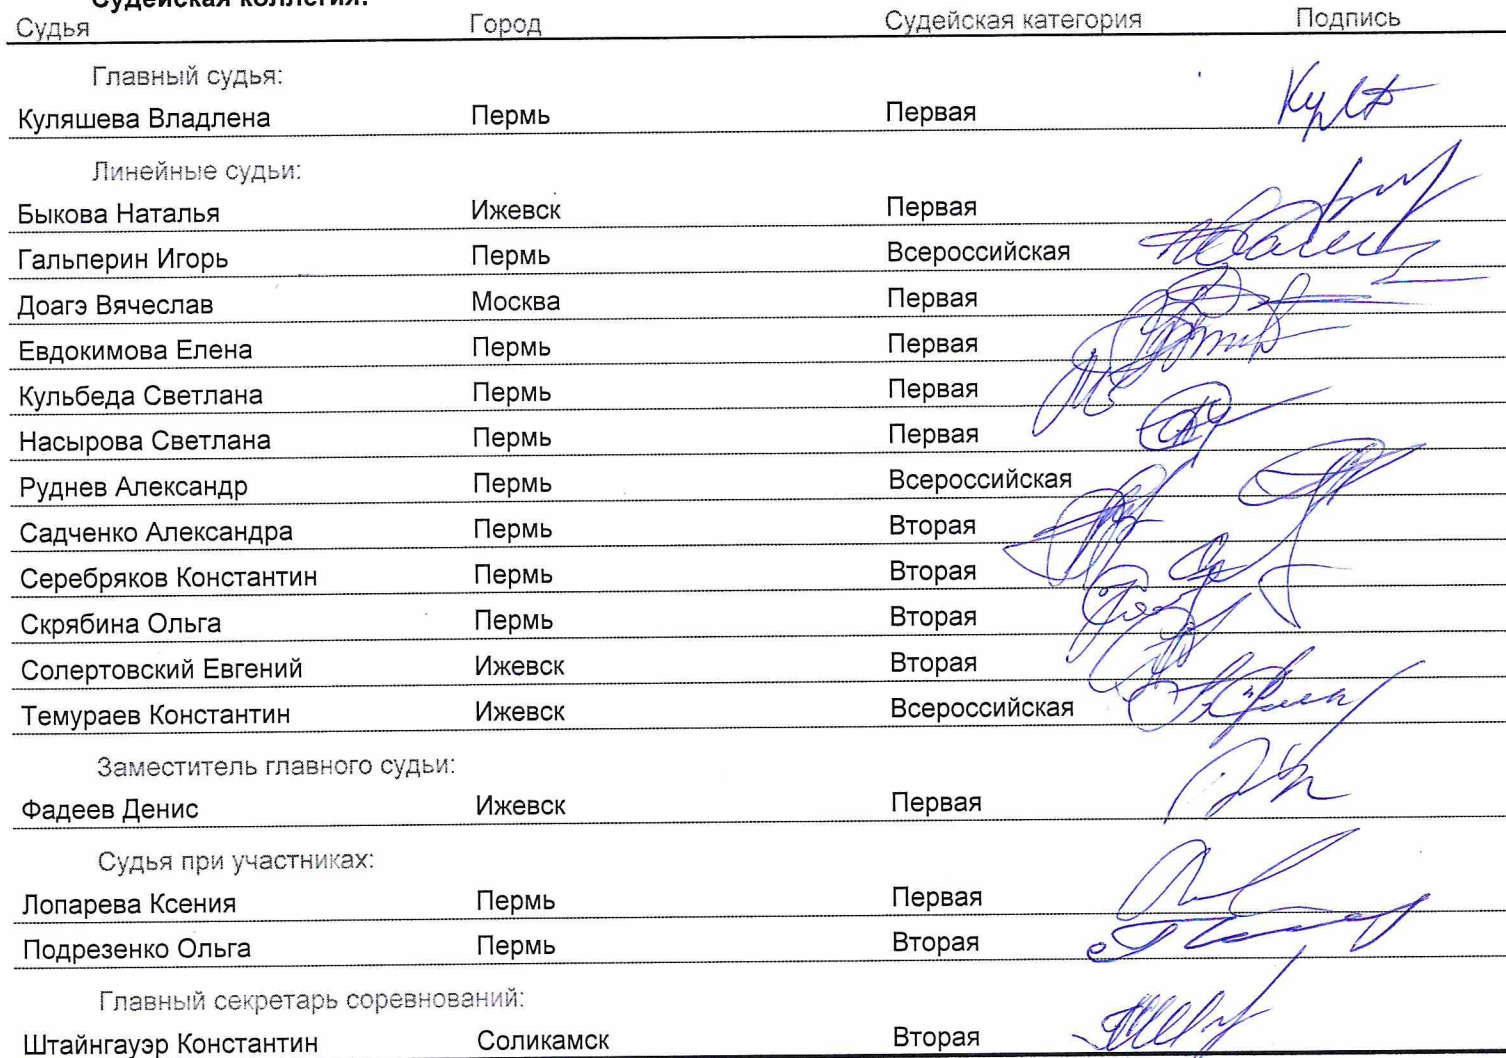 Судейская коллегия:
Судья Город Судейская категория Подпись
Главный судья:
Куляшева Владлена Пермь Первая
Линейные судьи:
Быкова Наталья Ижевск Первая
Гальперин Игорь Пермь Всероссийская
Доагэ Вячеслав Москва Первая
Евдокимова Елена Пермь Первая
Кульбеда Светлана Пермь Первая
Насырова Светлана Пермь Первая
Руднев Александр Пермь Всероссийская
Садченко Александра Пермь Вторая
Серебряков Константин Пермь Вторая
Скрябина Ольга Пермь Вторая
Солертовский Евгений Ижевск Вторая
Темураев Константин Ижевск Всероссийская
Заместитель главного судьи:
Фадеев Денис Ижевск Первая
Судья при участниках:
Лопарева Ксения Пермь Первая
Подрезенко Ольга Пермь Вторая
Главный секретарь соревнований:
Штайнгауэр Константин Соликамск Вторая